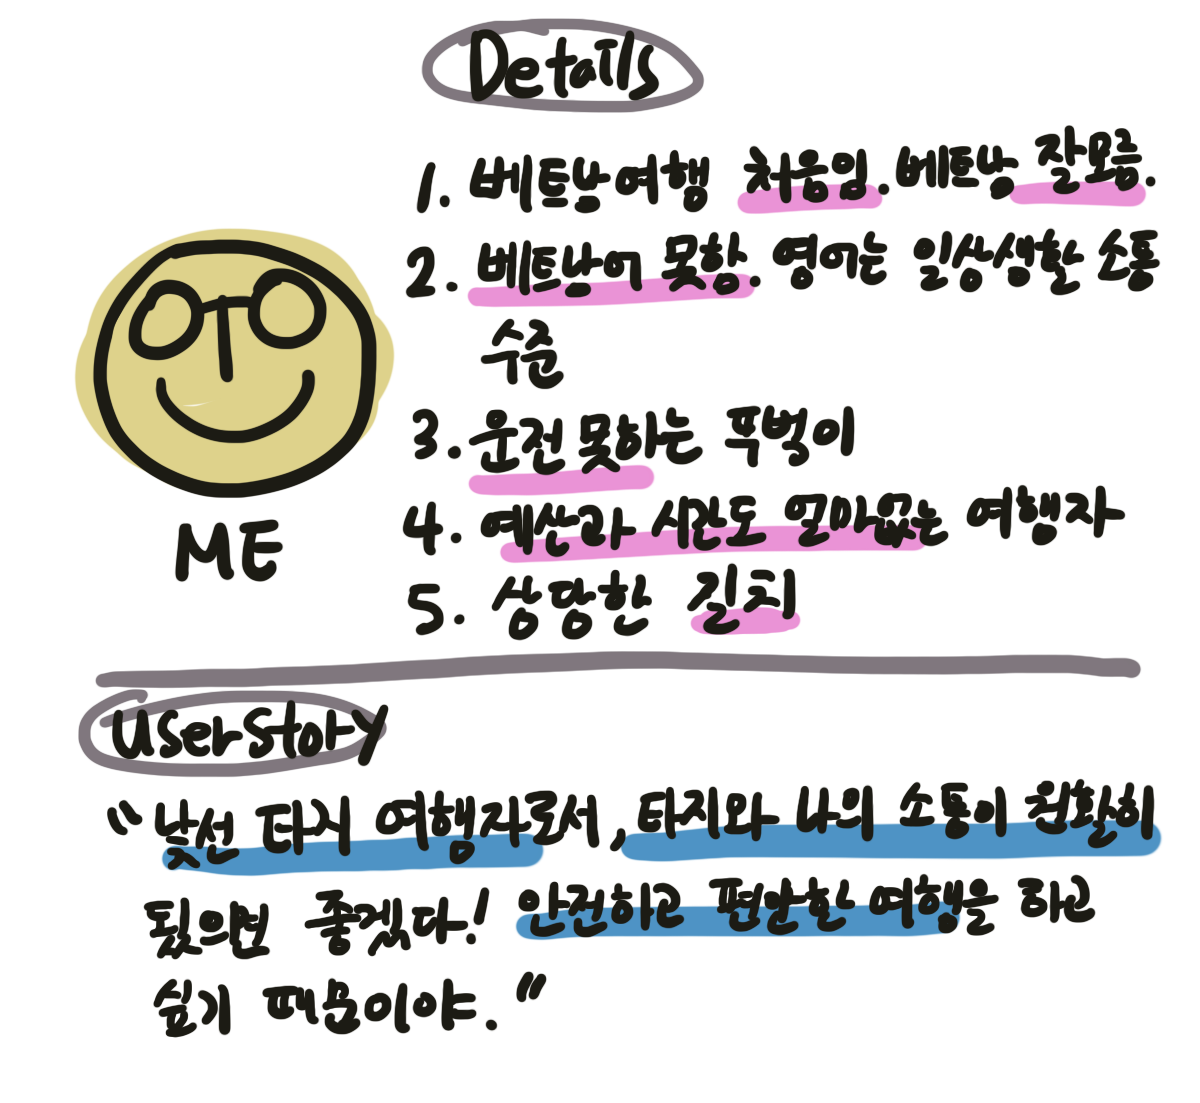 Details
1. 베트남여행 처음임. 베트남 잘모름.
2. 베트남어 못함. 영어는 일상생활 소통
수준
3. 운전 못하는 뚜벅이
4. 예산과 시간도 얼마없는 여행자
5. 상당한 길치
ME
User Story
"낯선 타지 여행자로서, 타지와 나의 소통이 원활히
됬으면 좋겠다! 안전하고 편안한 여행을 하고
싶기 때문이야."